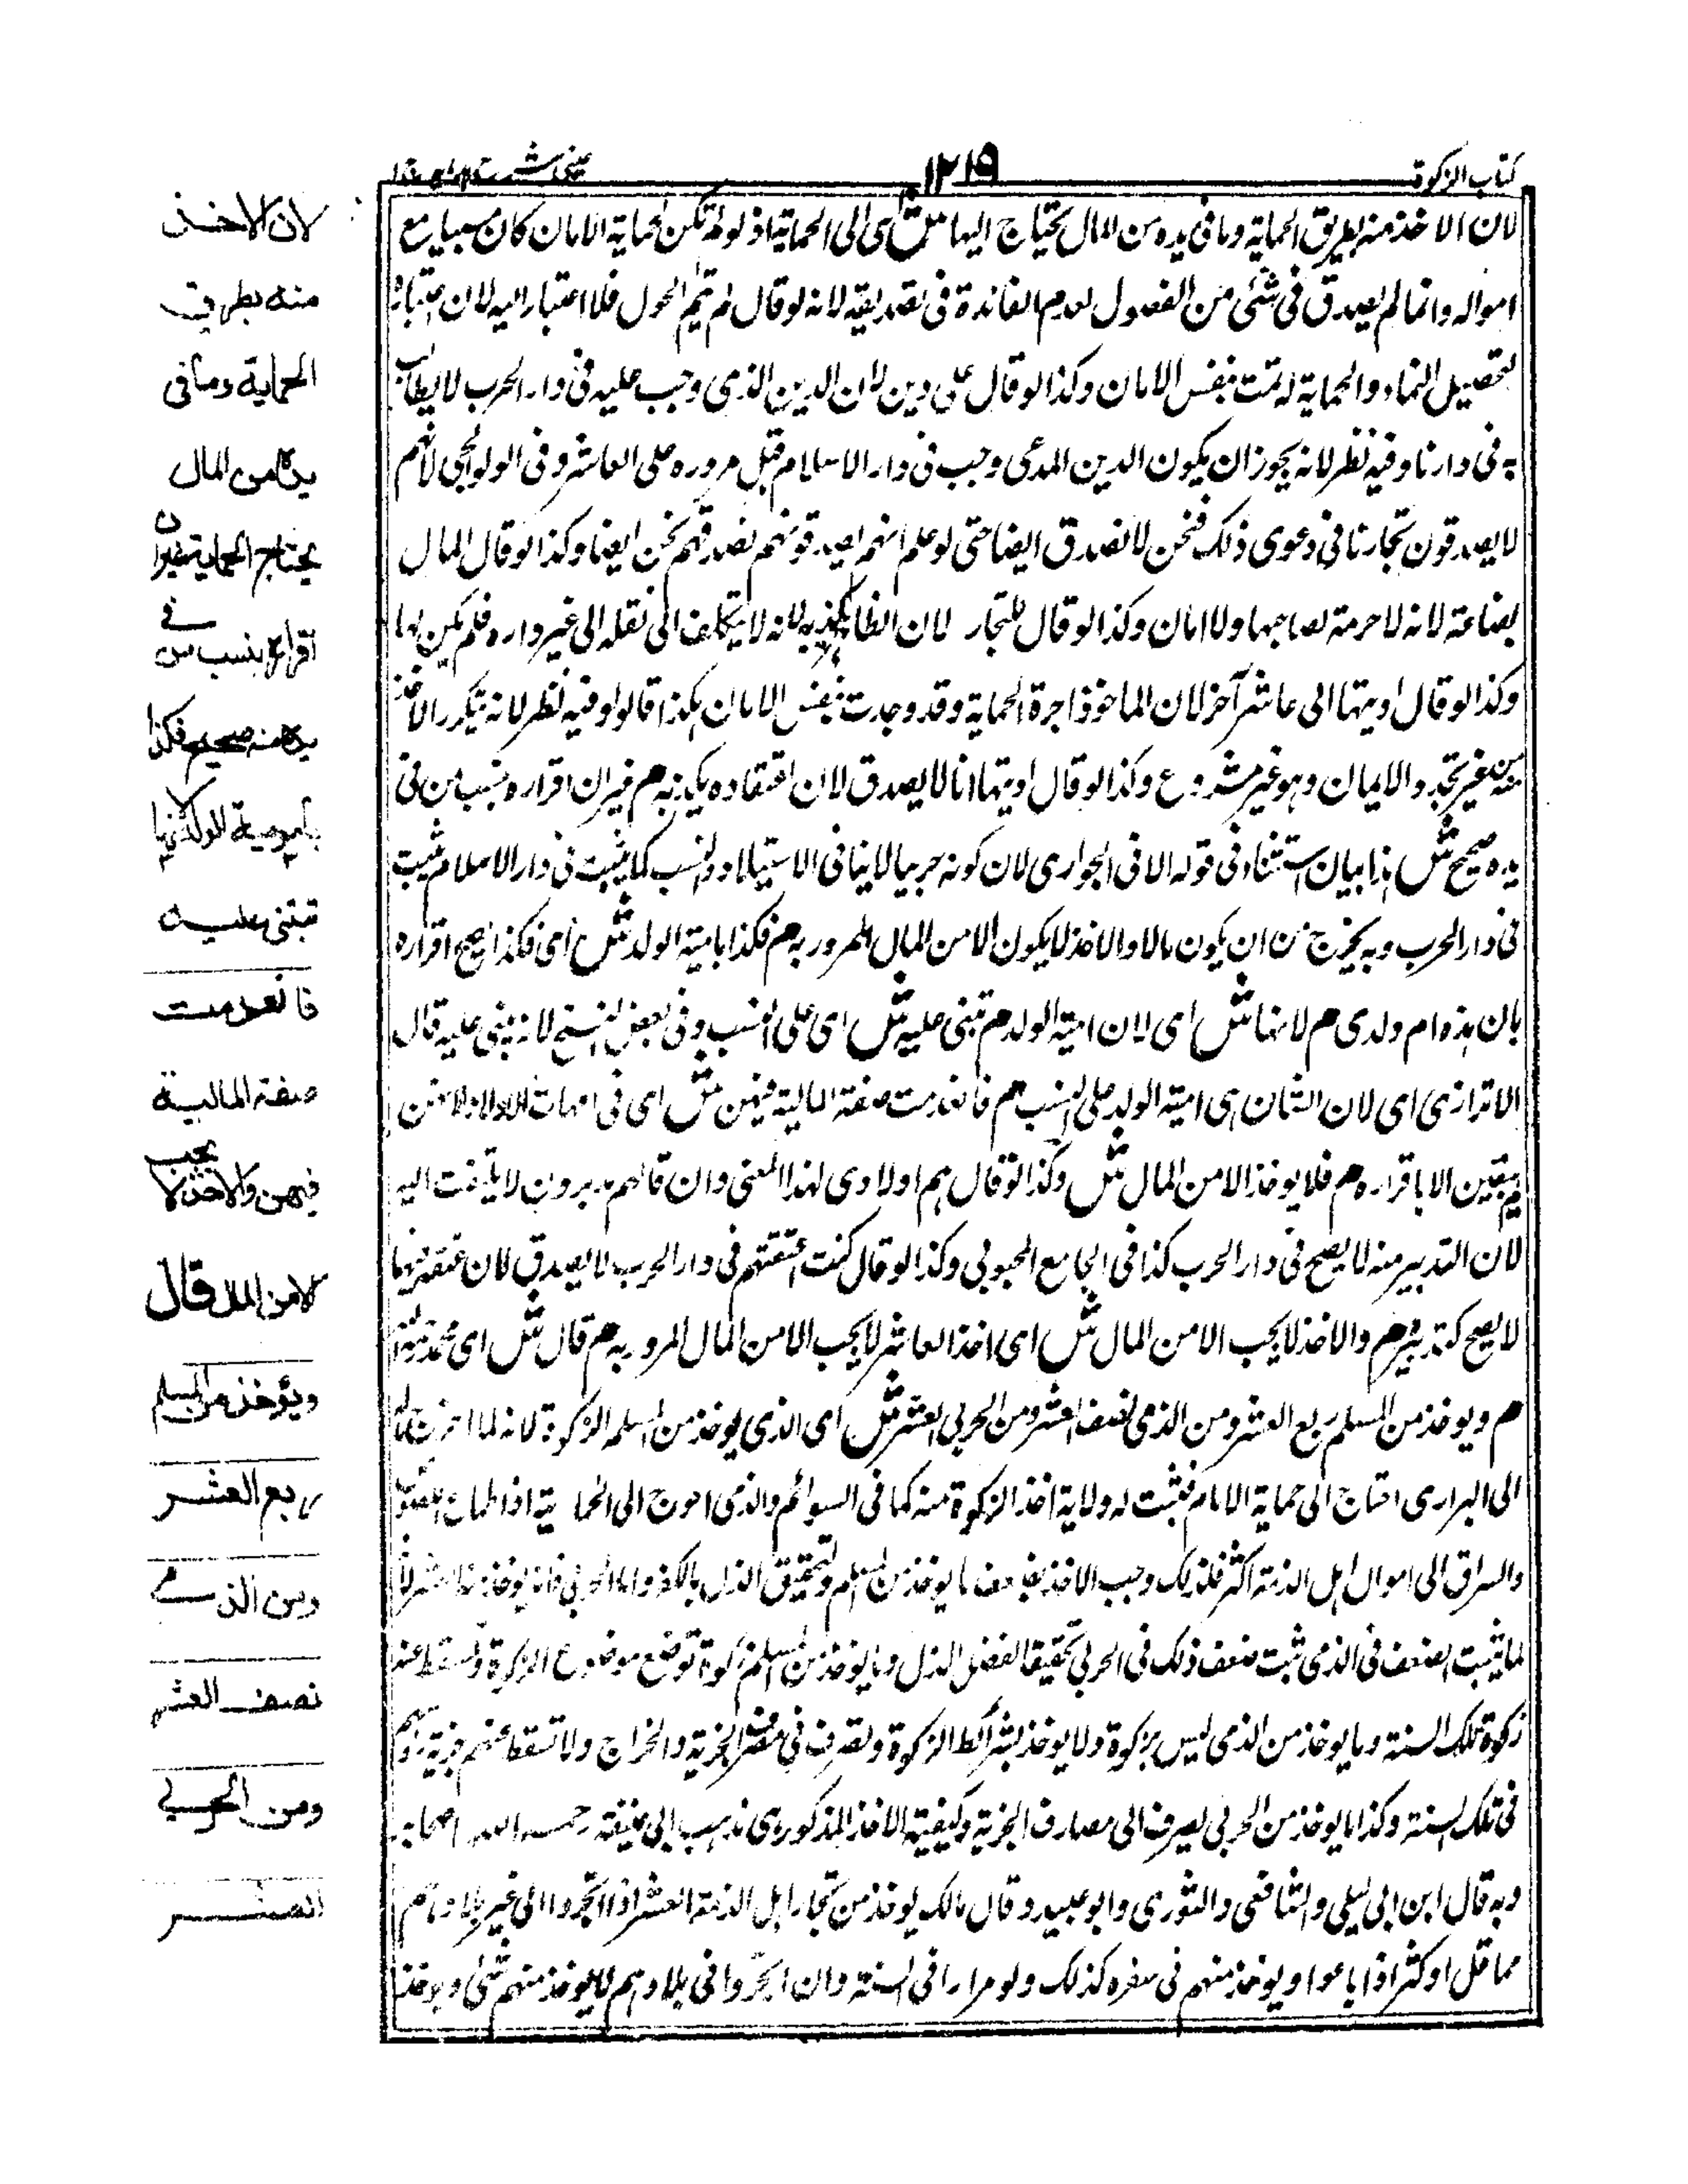 كتاب الزكوة
١٢١٩
عينى شرح هدايه
لان الاخذ منه بطريق الحماية وما فى يده من المال يحتاج اليها ش اى الى الحماية اذ لو لم تكن لحماية الامان كان سبيا مع
امواله وانما لم يصدق فى شئى من الفصول لعدم الفائدة فى تصديقه لانه لو قال لم يتم الحول فلا اعتبار اليه لان اعتباره
لتحصيل النماء والحماية له تمت بنفس الامان وكذا لو قال على دين لان الدين الذى وجب عليه فى دار الحرب لا يطالب
به فى دارنا وفيه نظر لانه يجوز ان يكون الدين المدعى وجب فى دار الاسلام قبل مروره على العاشر وفى الولوالجى لانهم
لا يصدقون تجارنا فى دعوى ذلك فنحن لا نصدق ايضا حتى لو علم انهم يصدقونهم نصدقهم نحن ايضا وكذا لو قال المال
بضاعة لانه لا حرمة لصاحبها ولا امان وكذا لو قال للتجار لان الظاهر يكذبه لانه لا يتكلف الى نقله الى غير داره فلم يكن لها
وكذا لو قال اديتها الى عاشر آخر لان الماخوذ اجرة الحماية وقد وجدت بنفس الامان هكذا قالوا وفيه نظر لانه يتكرر الاخذ
منه من غير تجدد الايمان وهو غير مشروع وكذا لو قال اديتها انا لا يصدق لان اعتقاده يكذبه م غير ان اقراره بنسب من فى
يده صحيح ش هذا بيان استثناء فى قوله الا فى الجوارى لان كونه حربيا لا ينافى الاستيلاد والنسب كما يثبت فى دار الاسلام يثبت
فى دار الحرب وبه يخرج من ان يكون مالا والاخذ لا يكون الا من المال الممرور به م فكذا بامية الولد ش اى فكذا يصح اقراره
بان هذه ام ولدى م لانها ش اى لان امية الولد م تبنى عليه ش اى على النسب وفى بعض النسخ لانه يبنى عليه قال
الاترازى اى لان الشان اى امية الولد على النسب م فانعدمت صفة المالية فيهن ش اى فى امهات الاولاد لانهن
يتيقن الا باقراره م فلا يوخذ الا من المال ش وكذا لو قال هم اولادى لهذا المعنى وان قال هم مدبرون لا يلتفت اليه
لان التدبير منه لا يصح فى دار الحرب كذا فى الجامع المحبوبى وكذا لو قال كنت اعتقتهم فى دار الحرب لا يصدق لان عتقه فيها
لا يصح كتدبيره م والاخذ لا يجب الا من المال ش اى اخذ العاشر لا يجب الا من المال الممرور به م قال ش اى محمد
م ويوخذ من المسلم ربع العشر ومن الذمى نصف العشر ومن الحربى العشر ش اى الذى يوخذ من المسلم الزكوة لانه لما اخرج ماله
الى البرارى احتاج الى حماية الامام فيثبت له ولاية اخذ الزكوة منه كما فى السوائم والذمى احوج الى الحماية اذ اطماع اللصوص
والسراق الى اموال اهل الذمة اكثر فلذلك وجب الاخذ بضعف ما يوخذ من المسلم ولتحقيق الذل بالكفر واما الحربى فانه يوخذ منه العشر لانه
لما يثبت الضعف فى الذمى ثبت ضعف ذلك فى الحربى تحقيقا لفضل الذل وما يوخذ من المسلم زكوة توضع موضع الزكوة وتسقط عنه
زكوة تلك السنة وما يوخذ من الذمى ليس بزكوة ولا يوخذ بشرائط الزكوة وتصرف فى مصرف الجزية والخراج ولا تسقط عنهم جزية
فى تلك السنة وكذا ما يوخذ من الحربى يصرف الى مصارف الجزية وكيفية الاخذ المذكورى مذهب ابى حنيفة رحمه الله واصحابه
وبه قال ابن ابى ليلى والشافعى والثورى وابو عبيد وقال مالك يوخذ من تجار اهل الذمة العشر اذا اتجروا الى غير بلادهم
مما قل او كثر اذا باعوا ويوخذ منهم فى سفره كذلك ولو مرارا فى السنة وان اتجروا فى بلادهم لا يوخذ منهم شئى ويوخذ
لان الاخذ
منه بطريق
الحماية وما فى
يده من المال
يحتاج الحماية غير ان
اقراره بنسب من فى
يده منه صحيح فكذا
بامومية الولد لانها
تبتنى عليه
فانعدمت
صفة المالية
فيهن والاخذ لا يجب
الا من المال قال
ويؤخذ من المسلم
ربع العشر
ومن الذمى
نصف العشر
ومن الحربى
العشر